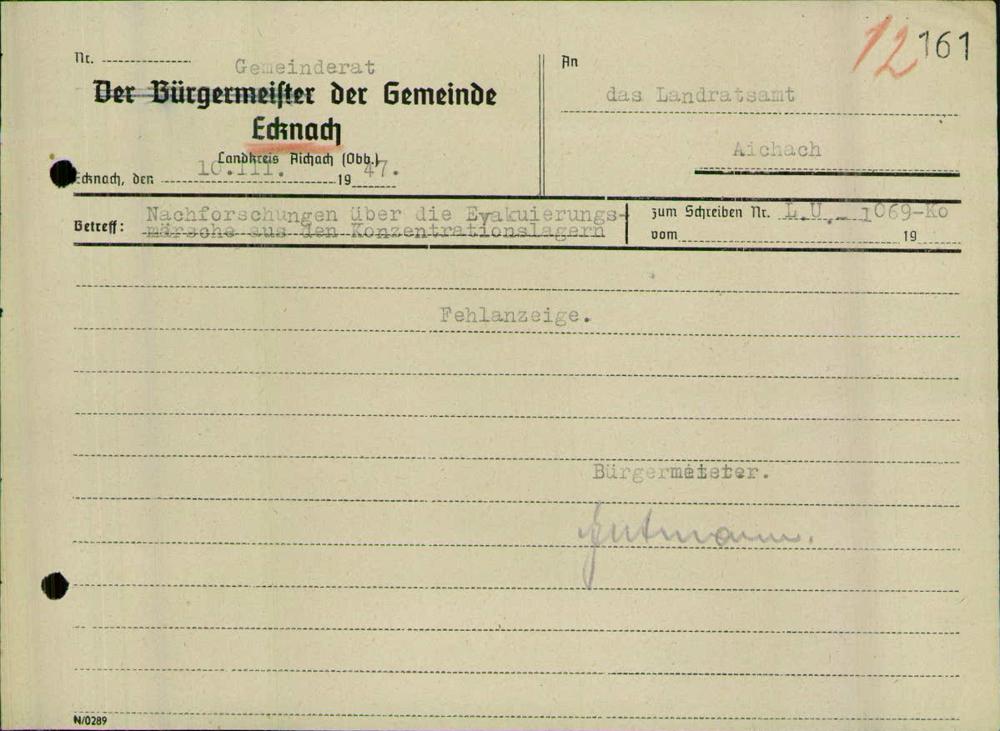 12 161
Nr.
Gemeinderat
Der Bürgermeister der Gemeinde
Ecknach
Landkreis Aichach (Obb.)
Ecknach, den 10.III. 1947.
An
das Landratsamt
Aichach
Betreff: Nachforschungen über die Evakuierungs-
märsche aus den Konzentrationslagern
zum Schreiben Nr. L.U. - 1069-Ko
vom 19
Fehlanzeige.
Bürgermeister.
Gutmann.
N/0289